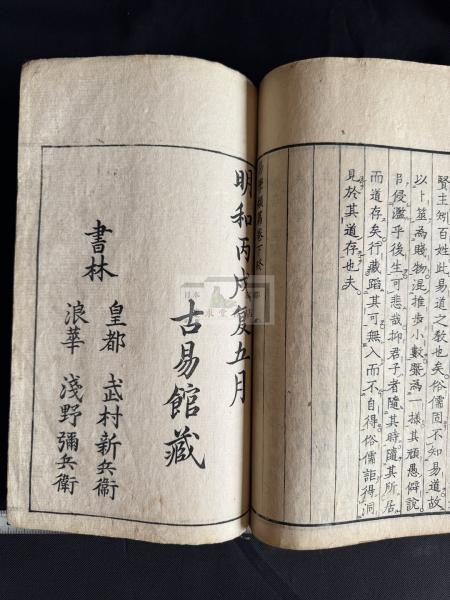 賢主矧百姓此易道之敎也矣俗儒固不知易道故
以卜筮為賤物混推步小數槩為一樣其頑愚僻説
侵濫乎後生可悲哉抑君子者隨其時隨其所居
而道存矣行藏蹈其可無入而不自得俗儒詎得洞
見於其道存也夫
卷下終
明和丙戌夏五月
古易館藏
書林
皇都 武村新兵衞
浪華 淺野彌兵衞